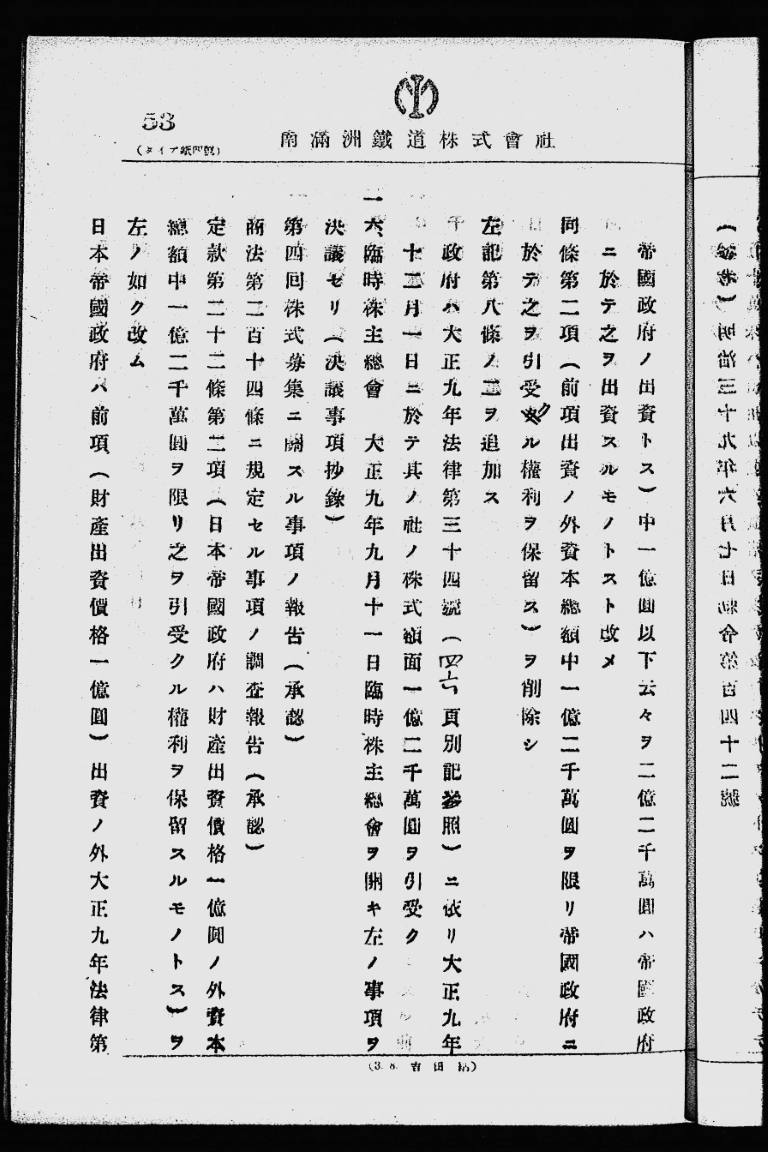 53
(タイプ紙四號)
南滿洲鐵道株式會社
帝國政府ノ出資トス)中一億圓以下云々ヲ二億二千萬圓ハ帝國政府
ニ於テ之ヲ出資スルモノトスト改メ
同條第二項(前項出資ノ外資本總額中一億二千萬圓ヲ限リ帝國政府ニ
於テ之ヲ引受クル權利ヲ保留ス)ヲ削除シ
左記第八條ノ二ヲ追加ス
政府ハ大正九年法律第三十四號(四六頁別記參照)ニ依リ大正九年
十二月一日ニ於テ其ノ社ノ株式額面一億二千萬圓ヲ引受ク
一六、臨時株主總會 大正九年九月十一日臨時株主總會ヲ開キ左ノ事項ヲ
決議セリ(決議事項抄錄)
第四回株式募集ニ關スル事項ノ報告(承認)
商法第二百十四條ニ規定セル事項ノ調査報告(承認)
定款第二十二條第二項(日本帝國政府ハ財產出資價格一億圓ノ外資本
總額中一億二千萬圓ヲ限リ之ヲ引受クル權利ヲ保留スルモノトス)ヲ
左ノ如ク改ム
日本帝國政府ハ前項(財產出資價格一億圓)出資ノ外大正九年法律第
(參考)明治三十九年六月七日勅令第百四十二號